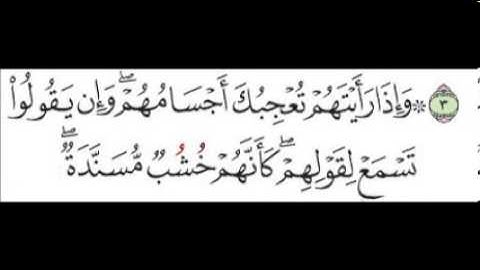 ٣ * وَإِذَا رَأَيْتَهُمْ تُعْجِبُكَ أَجْسَامُهُمْ ۖ وَإِن يَقُولُوا۟
تَسْمَعْ لِقَوْلِهِمْ ۖ كَأَنَّهُمْ خُشُبٌ مُّسَنَّدَةٌ ۖ